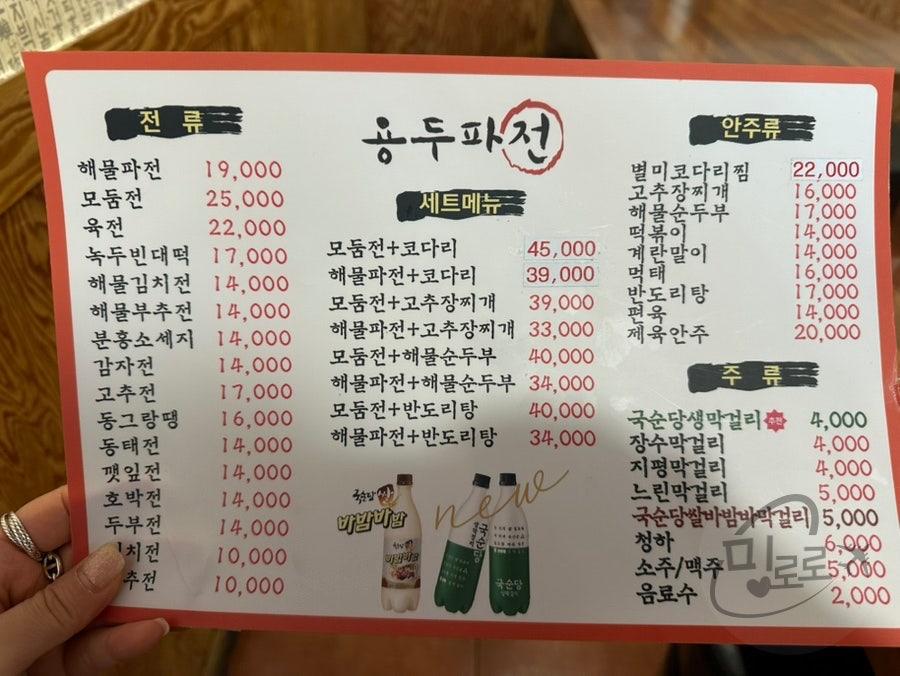 용두파전
전 류
해물파전 19,000
모둠전 25,000
육전 22,000
녹두빈대떡 17,000
해물김치전 14,000
해물부추전 14,000
분홍소세지 14,000
감자전 14,000
고추전 17,000
동그랑땡 16,000
동태전 14,000
깻잎전 14,000
호박전 14,000
두부전 14,000
치전 10,000
추전 10,000
세트메뉴
모둠전+코다리 45,000
해물파전+코다리 39,000
모둠전+고추장찌개 39,000
해물파전+고추장찌개 33,000
모둠전+해물순두부 40,000
해물파전+해물순두부 34,000
모둠전+반도리탕 40,000
해물파전+반도리탕 34,000
국순당쌀
바밤바밤
new
국순당
국순당
안주류
별미코다리찜 22,000
고추장찌개 16,000
해물순두부 17,000
떡볶이 14,000
계란말이 14,000
먹태 16,000
반도리탕 17,000
편육 14,000
제육안주 20,000
주 류
국순당생막걸리 추천 4,000
장수막걸리 4,000
지평막걸리 4,000
느린막걸리 5,000
국순당쌀바밤바막걸리 5,000
청하 6,000
소주/맥주 5,000
음료수 2,000
미로로